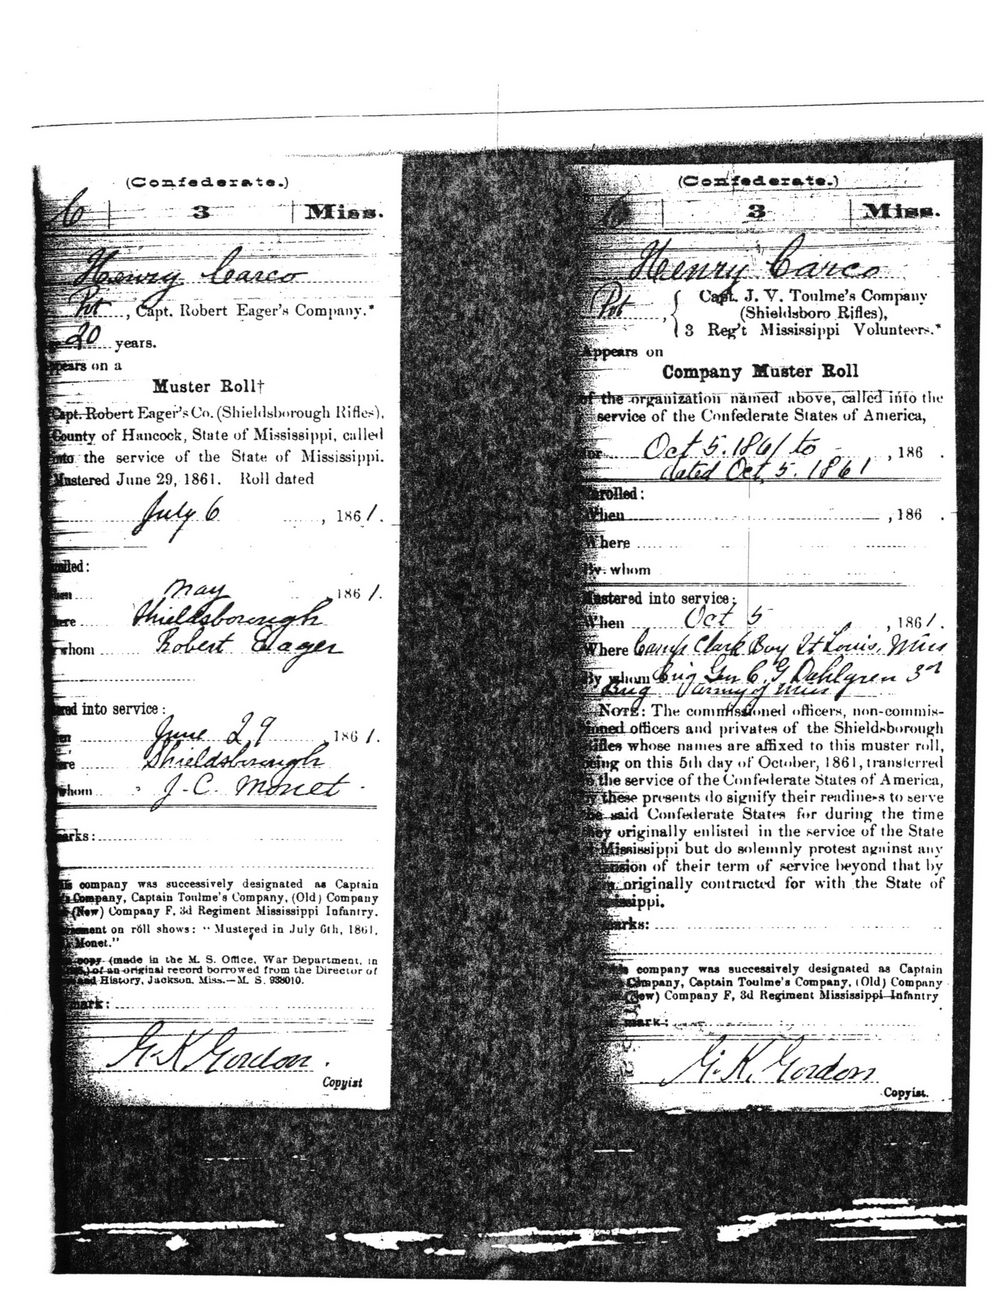 (Confederate.)
C 3 Miss.
Henry Carco
Pvt, Capt. Robert Eager's Company.*
20 years.
pears on a
Muster Roll†
Capt. Robert Eager's Co. (Shieldsborough Rifles),
County of Hancock, State of Mississippi, called
into the service of the State of Mississippi.
Mustered June 29, 1861. Roll dated
July 6, 1861.
lled:
en May, 1861.
ere Shieldsborough
whom Robert Eager
ed into service:
en June 29 1861.
ere Shieldsborough
whom J. C. Monet
arks:
is company was successively designated as Captain
's Company, Captain Toulme's Company, (Old) Company
(New) Company F, 3d Regiment Mississippi Infantry.
ement on roll shows: "Mustered in July 6th, 1861,
Monet."
copy (made in the M. S. Office, War Department, in
) of an original record borrowed from the Director of
and History, Jackson, Miss.—M. S. 938010.
mark:
G. K. Gordon.
Copyist
(Confederate.)
3 Miss.
Henry Carco
Pvt, { Capt. J. V. Toulme's Company
(Shieldsboro Rifles),
3 Reg't Mississippi Volunteers.*
Appears on
Company Muster Roll
of the organization named above, called into the
service of the Confederate States of America,
for Oct 5. 1861 to, 186 .
dated Oct. 5. 1861
Enrolled:
When, 186 .
Where
By whom
Mustered into service:
When Oct 5, 1861.
Where Camp Clark Bay St Louis, Miss
By whom Brig Gen C. G Dahlgren 3rd
Brig army of Miss
NOTE: The commissioned officers, non-commis-
ioned officers and privates of the Shieldsborough
Rifles whose names are affixed to this muster roll,
eing on this 5th day of October, 1861, transferred
the service of the Confederate States of America,
by these presents do signify their readiness to serve
he said Confederate States for during the time
hey originally enlisted in the service of the State
Mississippi but do solemnly protest against any
ension of their term of service beyond that by
originally contracted for with the State of
issippi.
marks:
is company was successively designated as Captain
Company, Captain Toulme's Company, (Old) Company
(New) Company F, 3d Regiment Mississippi Infantry
mark:
G. K. Gordon
Copyist.